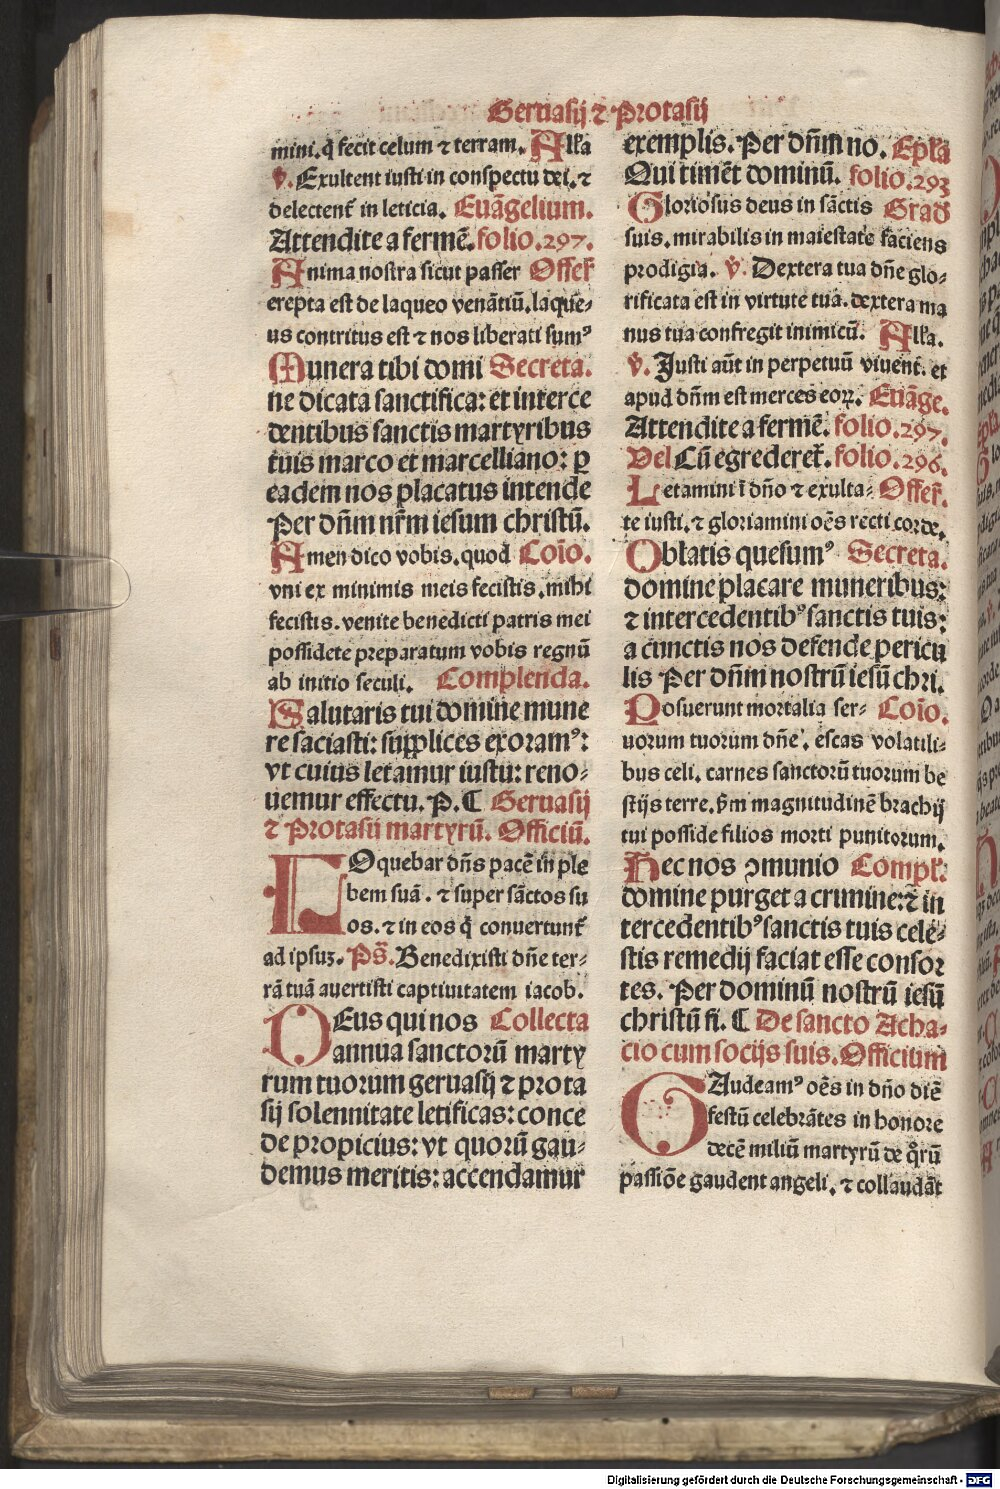 Geruasij ⁊ Protasij
mini. q̄ fecit celum ⁊ terram. Alľa
v̄. Exultent iusti in conspectu dei. ⁊
delectent᷑ in leticia. Euāgelium.
Attendite a fermē. folio. 297.
Anima nostra sicut passer Offer̄
erepta est de laqueo venātiū. laque⸗
us contritus est ⁊ nos liberati sumꝰ
Munera tibi domi Secreta.
ne dicata sanctifica: et interce
dentibus sanctis martyribus
tuis marco et marcelliano: ꝑ
eadem nos placatus intende
Per dn̄m nr̄m iesum christū.
Amen dico vobis. quod Coīo.
vni ex minimis meis fecistis. mihi
fecistis. venite benedicti patris mei
possidete preparatum vobis regnū
ab initio seculi. Complenda.
Salutaris tui domine mune
re saciasti: supplices exoramꝰ:
vt cuius letamur iustu: reno⸗
uemur effectu. P. ¶ Geruasij
⁊ Protasii martyrū. Officiū.
LOquebar dn̄s pacē in ple
bem suā. ⁊ super sāctos su
os. ⁊ in eos q̄ conuertunt᷑
ad ipsuꝫ. Ps̄. Benedixisti dn̄e ter⸗
rā tuā auertisti captiuitatem iacob.
DEus qui nos Collecta
annua sanctorū marty
rum tuorum geruasij ⁊ prota
sij solennitate letificas: conce
de propicius: vt quorū gau⸗
demus meritis: accendamur
exemplis. Per dn̄m no. Epľa
Qui timēt dominū. folio. 293
Gloriosus deus in sāctis Grad̄
suis. mirabilis in maiestate faciens
prodigia. v̄. Dextera tua dn̄e glo⸗
rificata est in virtute tua. dextera ma
nus tua confregit inimicū. Alľa.
v̄. Justi aūt in perpetuū viuent. et
apud dn̄m est merces eoꝝ. Euāge.
Attendite a fermē. folio. 297.
Vel Cū egrederet᷑. folio. 296.
Letamini ī dn̄o ⁊ exulta⸗ Offer̄.
te iusti. ⁊ gloriamini oēs recti corde.
Oblatis quesumꝰ Secreta.
domine placare muneribus:
⁊ intercedentibꝰ sanctis tuis:
a cunctis nos defende pericu
lis Per dn̄m nostrū iesū chri.
Posuerunt mortalia ser⸗ Coīo.
uorum tuorum dn̄e. escas volatili⸗
bus celi. carnes sanctorū tuorum be
stijs terre. s̄m magnitudinē brachij
tui posside filios morti punitorum.
Hec nos ꝯmunio Compľ.
domine purget a crimine: ⁊ in
tercedentibꝰ sanctis tuis cele⸗
stis remedij faciat esse consor
tes. Per dominū nostrū iesū
christū fi. ¶ De sancto Acha⸗
cio cum socijs suis. Officium
GAudeamꝰ oēs in dn̄o diē
festū celebrātes in honore
decē miliū martyrū de qͦrū
passiōe gaudent angeli. ⁊ collaudāt
Digitalisierung gefördert durch die Deutsche Forschungsgemeinschaft - DFG